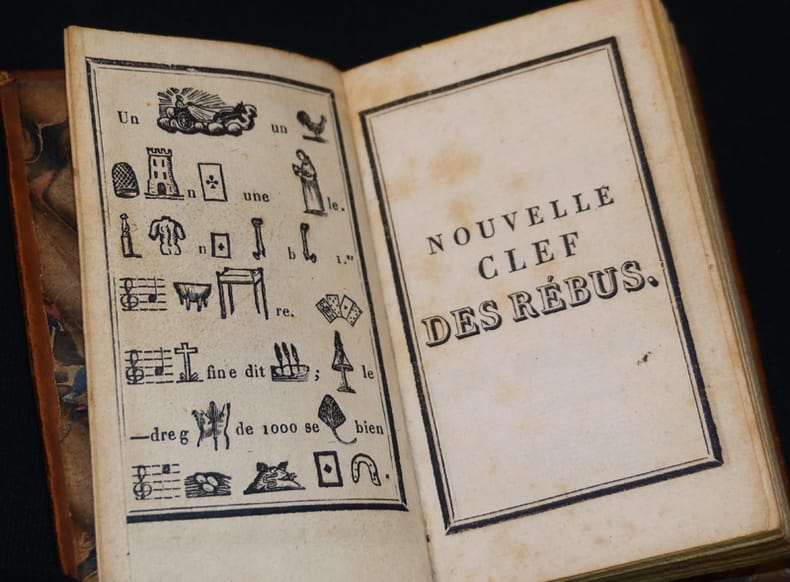 Un un
n une le.
n b 1.er
re.
fine dit ; le
—dre g de 1000 se bien
.
NOUVELLE
CLEF
DES RÉBUS.